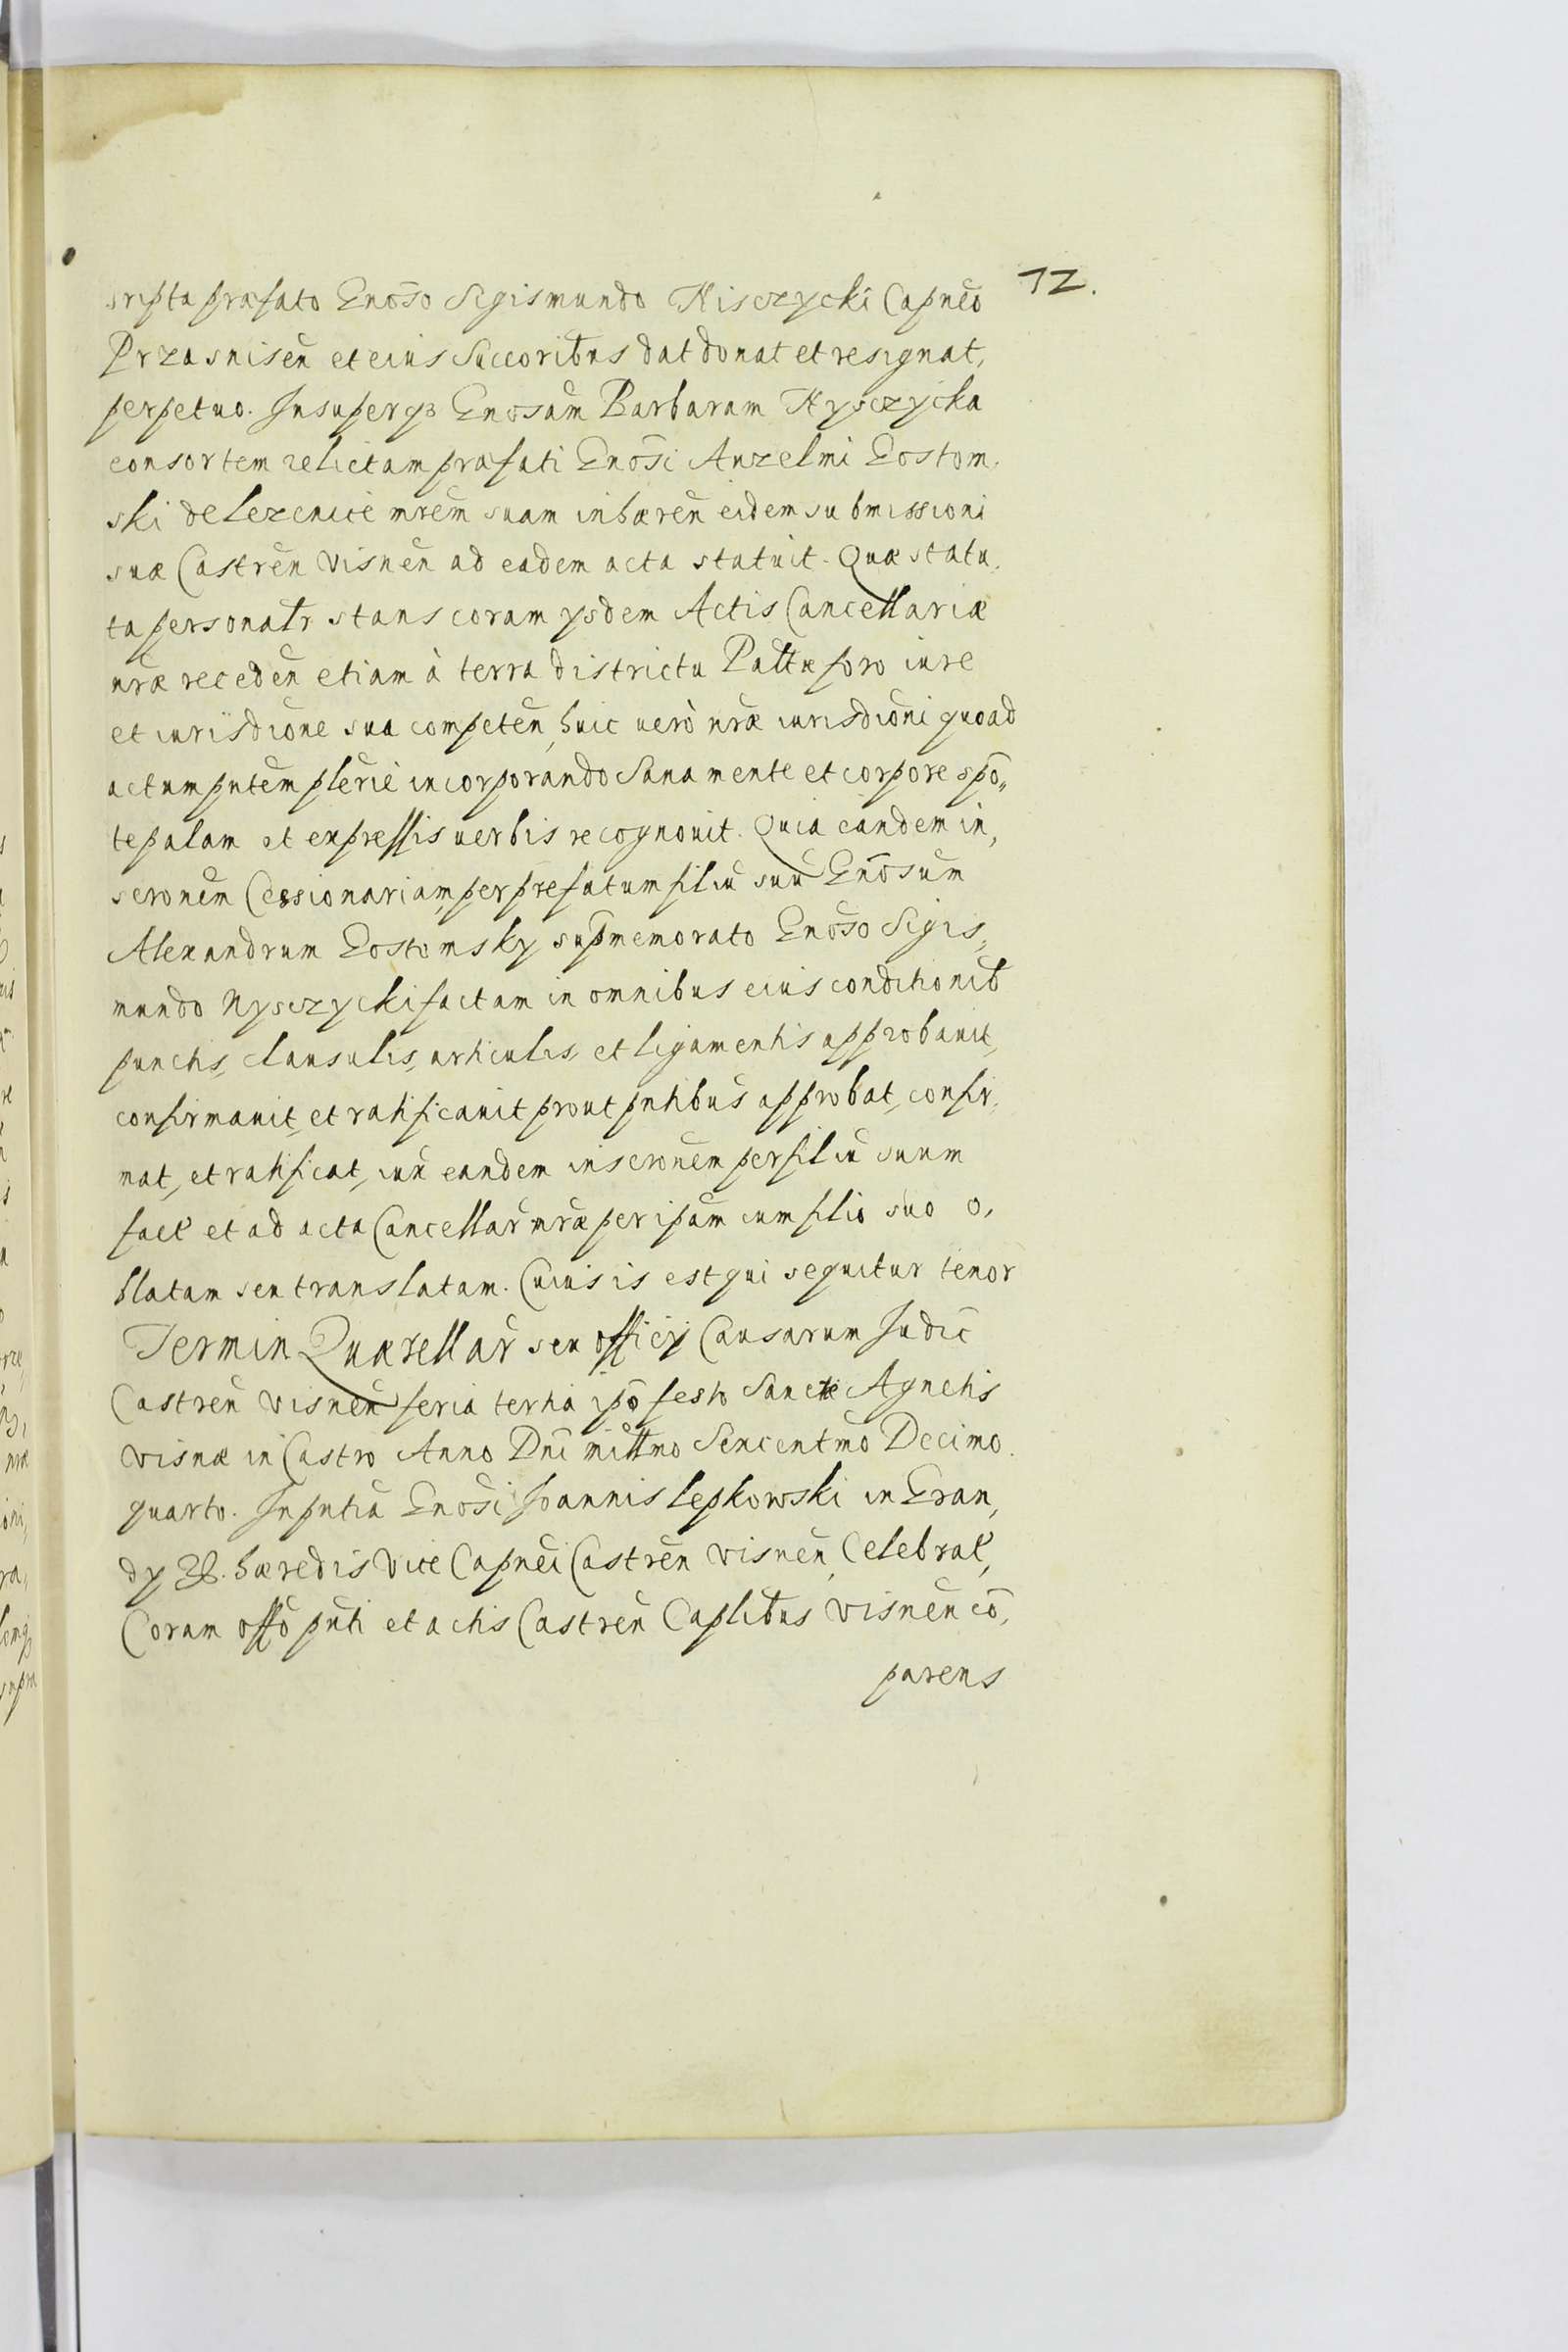 12.
scripta præfato Gnoso Sigismundo Nisczycki Capneo
Przasnisen̄ et eius Succoribus dat donat et resignat,
perpetuo. Insuperqȝ Gnosam Barbaram Nysczycka
consortem relictam præfati Gnosi Anzelmi Gostom,
ski de Lezenice mrem suam inhæren̄ eidem submissioni
suæ Castren̄ Visnen̄ ad eadem acta statuit. Quæ statu,
ta personalr stans coram ysdem Actis Cancellariæ
nræ receden̄ etiam à terra districtu Palttu foro iure
et iurisdione sua competen̄, huic uerò nræ iurisdioni quoad
actum pntem plenè incorporando Sana mente et corpore spō„
te palam et expressis uerbis recognouit. Quia eandem in,
scronem Cessionariam, per præfatum filiū suū Gnosum
Alexandrum Gostomsky supmemorato Gnoso Sigis,
mundo Nysczycki factam in omnibus eius conditionib
punctis, clausulis, articulis, et ligamentis approbauit,
confirmauit, et ratificauit prout pntibus approbat, confir,
mat, et ratificat, unā eandem inscronem per filiū suum
fact et ad acta Cancellar nræ per ipsam cum filio suo o,
blatam seu translatam. Cuius is est qui sequitur tenor
Termin Quærellar seu officij Causarum Judic
Castren̄ Visnen̄ feria tertia ipō festo Sanctæ Agnetis
Visnæ in Castro Anno Dni milltmo Sexcentmo Decimo
quarto. In pntia Gnosi Joannis Lepkowski in Gran,
dy ZB. hæredis Vice Capnei Castren̄ Visnen̄, Celebrat,
Coram offō pnti et actis Castren̄ Caplibus Visnen̄ cō,
parens